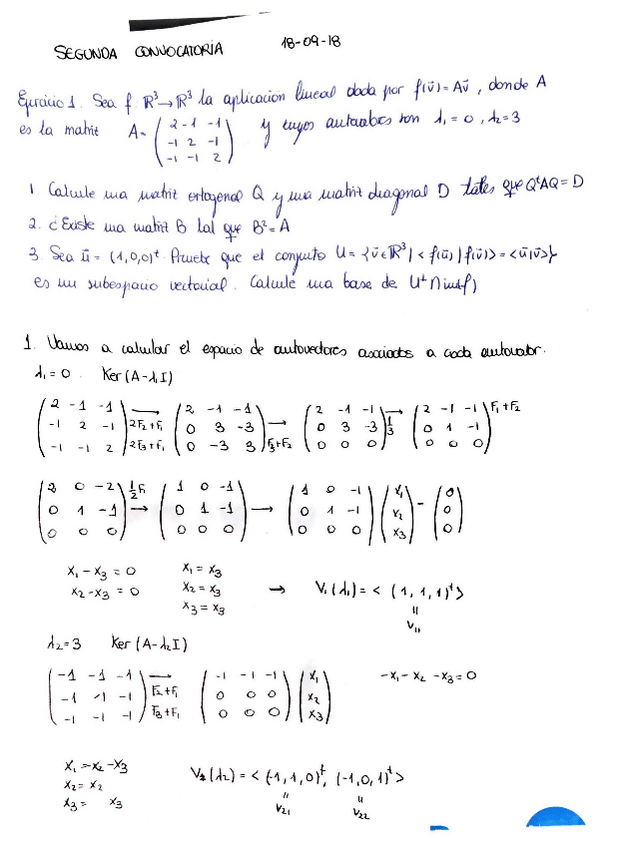 SEGUNDA CONVOCATORIA 18-09-18
Ejercicio 1. Sea f: ℝ³→ℝ³ la aplicación lineal dada por f(v⃗)=Av⃗, donde A
es la matriz A= (2 -1 -1; -1 2 -1; -1 -1 2) y cuyos autovalores son λ₁=0, λ₂=3
1. Calcule una matriz ortogonal Q y una matriz diagonal D tales que QᵗAQ=D
2. ¿Existe una matriz B tal que B²=A
3. Sea u⃗=(1,0,0)ᵗ. Pruebe que el conjunto U={v⃗∈ℝ³|<f(u⃗)|f(v⃗)>=<u⃗|v⃗>}
es un subespacio vectorial. Calcule una base de U⊥∩im(f)
1. Vamos a calcular el espacio de autovectores asociados a cada autovalor.
λ₁=0 Ker(A-λ₁I)
(2 -1 -1; -1 2 -1; -1 -1 2) → 2F₂+F₁ 2F₃+F₁ (2 -1 -1; 0 3 -3; 0 -3 3) → F₃+F₂ (2 -1 -1; 0 3 -3; 0 0 0) → 1/3 (2 -1 -1; 0 1 -1; 0 0 0) F₁+F₂
(2 0 -2; 0 1 -1; 0 0 0) 1/2 F₁ → (1 0 -1; 0 1 -1; 0 0 0) → (1 0 -1; 0 1 -1; 0 0 0) (x₁; x₂; x₃) = (0; 0; 0)
x₁-x₃=0 x₁=x₃
x₂-x₃=0 x₂=x₃ → V₁(λ₁)=<(1,1,1)ᵗ>
x₃=x₃ =
V₁₁
λ₂=3 Ker(A-λ₂I)
(-1 -1 -1; -1 -1 -1; -1 -1 -1) → F₂+F₁ F₃+F₁ (-1 -1 -1; 0 0 0; 0 0 0) (x₁; x₂; x₃) -x₁-x₂-x₃=0
x₁=-x₂-x₃ V₂(λ₂)=<(-1,1,0)ᵗ, (-1,0,1)ᵗ>
x₂=x₂ = =
x₃= x₃ V₂₁ V₂₂